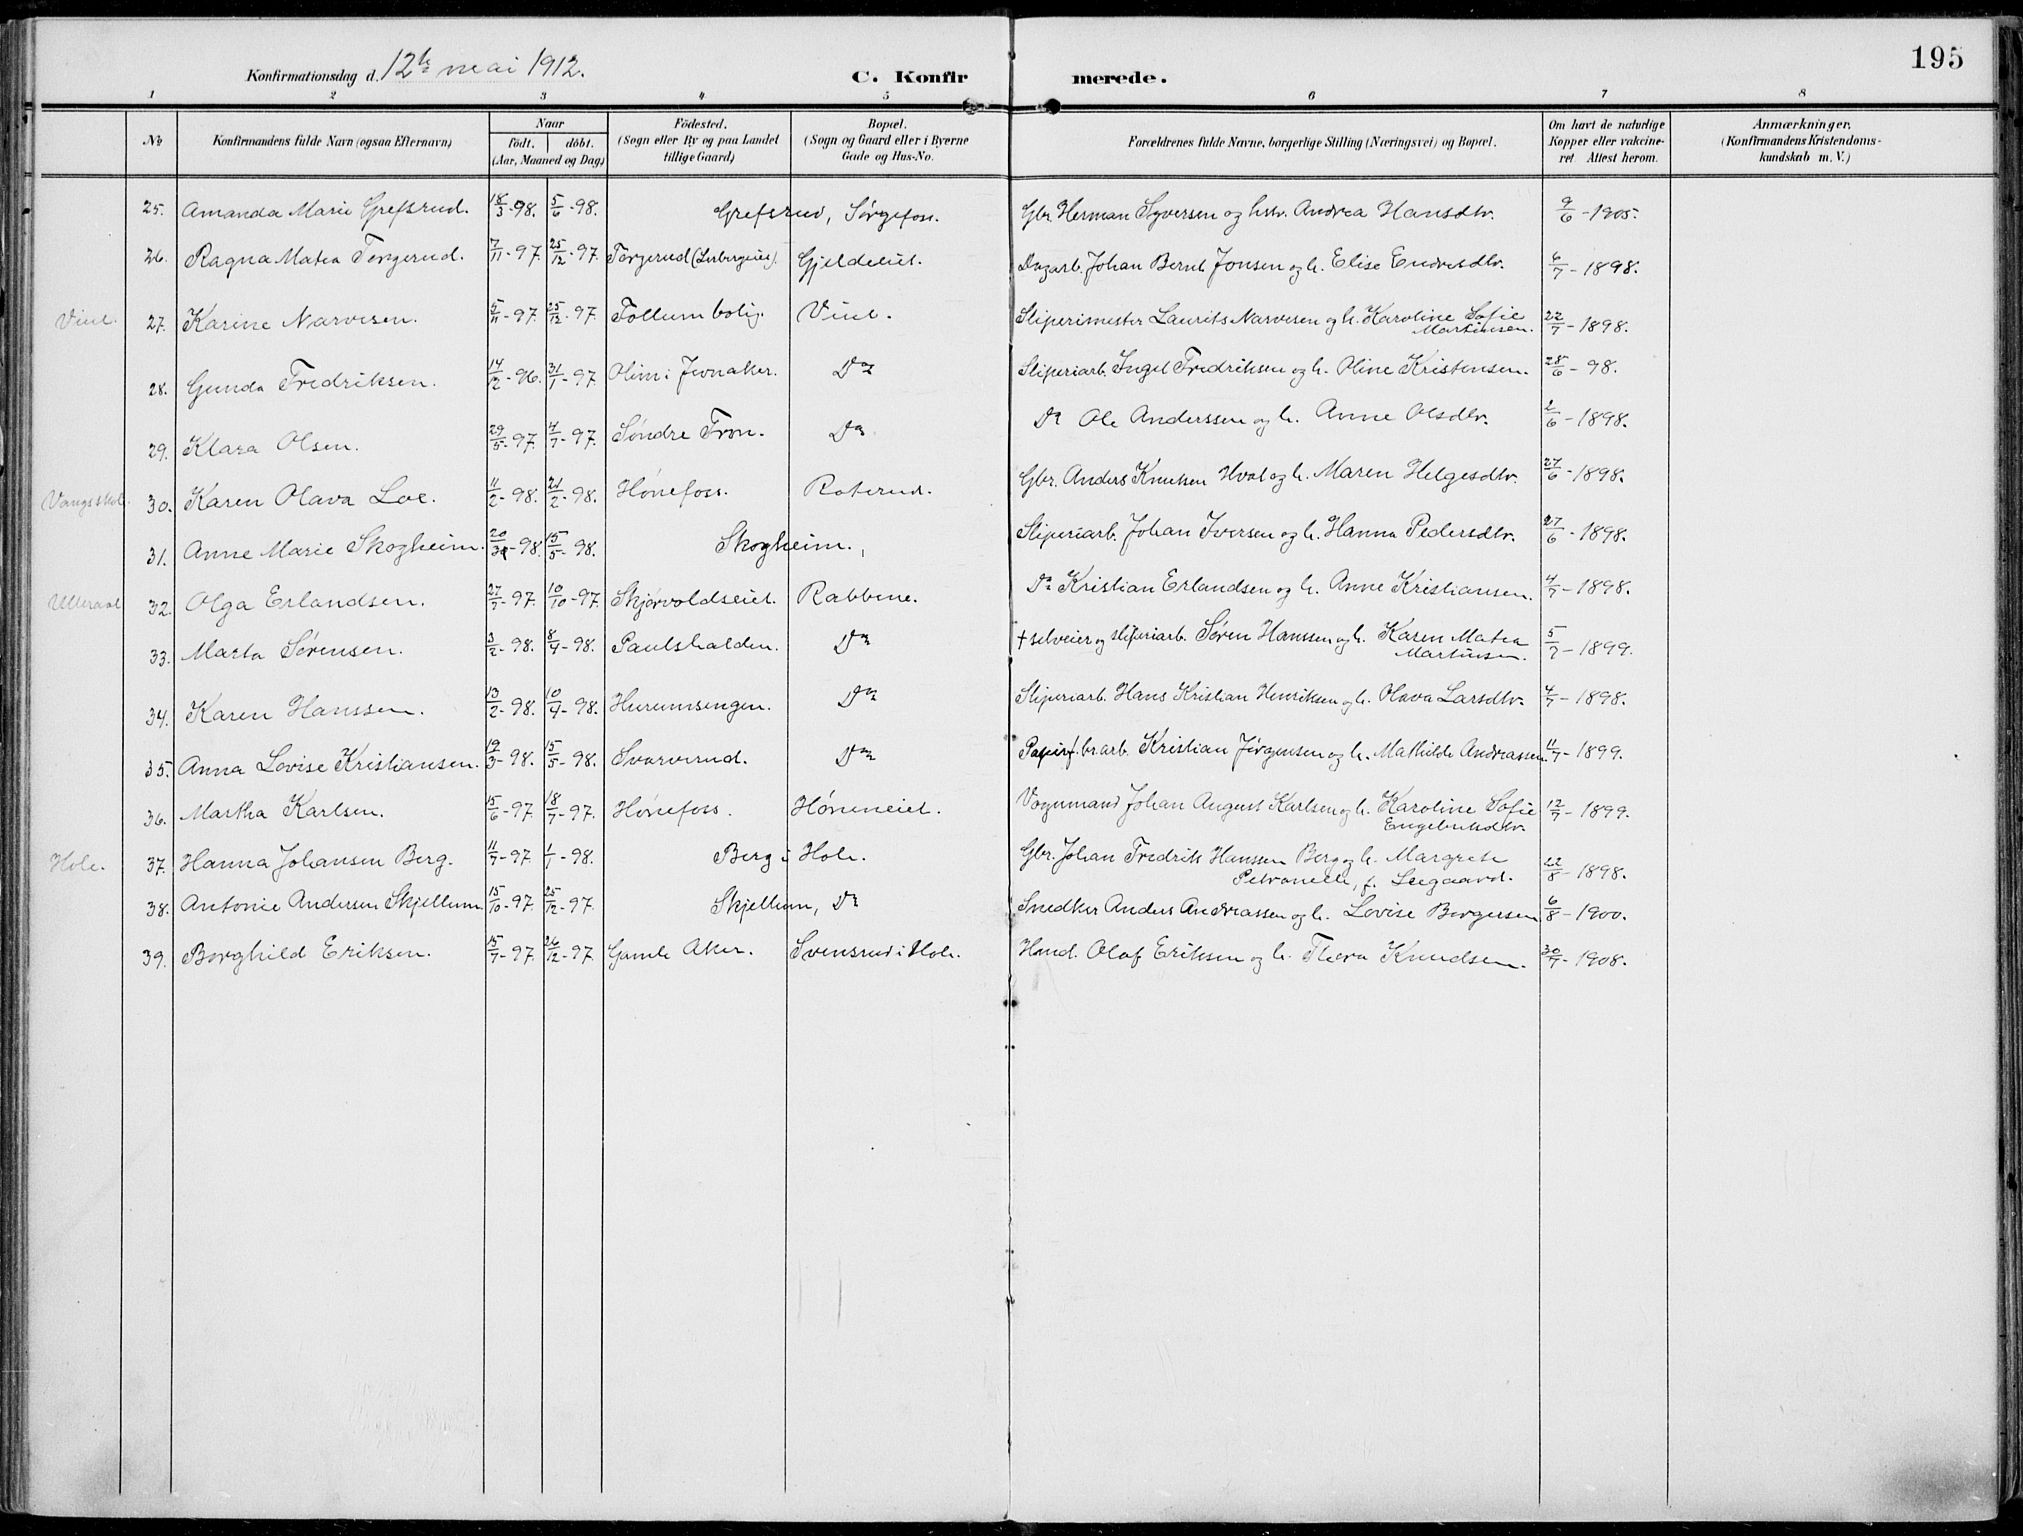 195
Konfirmationsdag d. 12te mai 1912.
C. Konfirmerede.
1 2 3 4 5 6 7 8
No Konfirmandens fulde Navn (ogsaa Efternavn) Naar Födt. döbt. (Aar, Maaned og Dag) Födested. (Sogn eller By og paa Landet tillige Gaard) Bopæl. (Sogn og Gaard eller i Byerne Gade og Hus-No. Forældrenes fulde Navne, borgerlige Stilling (Næringsvei) og Bopæl. Om havt de naturlige Kopper eller vakcineret Attest herom. Anmærkninger. (Konfirmandens Kristendomskundskab m. V.)
25. Amanda Marie Grefsrud. 18/3-98. 5/6-98. Grefsrud, Sørgefoss. Gbr. Herman Syversen og hstr. Andrea Hansdtr. 9/6-1905.
26. Ragna Matea Torgerud. 7/11-97. 25/12-97. Torgerud Gjeldeiet. Dagarb. Johan Bernt Jonsen og h. Elise Endresdtr. 6/7-1898.
Viul. 27. Karine Narvesen. 5/11-97. 25/12-97. Follum bolig. Viul. Sliperimester Laurits Narvesen og h. Karoline Sofie Martinsen. 22/7-1898.
28. Gunda Fredriksen. 14/12-96. 31/1-97. Olim i Jevnaker. Do Sliperiarb. Ingel Fredriksen og h. Oline Kristensen. 28/6-98.
29. Klara Olsen. 29/5-97. 4/7-97. Søndre Tron. Do Do Ole Anderssen og h. Anne Olsdtr. 2/6-1898.
Vangsskol. 30. Karen Olava Loe. 11/2-98. 21/2-98. Hønefoss. Roterud. Gbr. Anders Knutsen Hval og h. Maren Helgesdtr. 27/6-1898.
31. Anne Marie Skogheim. 20/3-98. 15/5-98. Skogheim. Sliperiarb. Johan Iversen og h. Hanna Pedersdtr. 27/6-1898.
Ulleraal 32. Olga Erlandsen. 27/7-97. 10/10-97. Skjørvoldseiet. Rabbene. Do Kristian Erlandsen og h. Anne Kristiansen. 4/7-1898.
33. Marta Sørensen. 3/2-98. 8/4-98. Paulshalden. Do + selveier og sliperiarb. Søren Hanssen og h. Karen Matea Martinsen. 5/7-1899.
34. Karen Hanssen. 13/2-98. 10/4-98. Hurumsengen. Do Sliperiarb. Hans Kristian Henriksen og h. Olava Larsdtr. 4/7-1898.
35. Anna Lovise Kristiansen. 19/3-98. 15/5-98. Svarverud. Do Papirf.brarb. Kristian Jørgensen og h. Mathilde Andreassen. 11/7-1899.
36. Martha Karlsen. 15/6-97. 18/7-97. Hønefoss. Høneneiet. Vognmand Johan August Karlsen og h. Karoline Sofie Engebretsdtr. 12/7-1899.
Hole. 37. Hanna Johansen Berg. 11/7-97. 1/1-98. Berg i Hole. Gbr. Johan Fredrik Hanssen Berg og h. Margrete Petronelle, f. Leegaard. 22/8-1898.
38. Antonie Andersen Skjellum. 15/10-97. 25/12-97. Skjellum, Do Snedker Anders Andreassen og h. Lovise Borgersen 6/8-1900.
39. Borghild Eriksen. 15/7-97. 26/12-97. Gamle Aker. Svensrud i Hole. Hand. Olaf Eriksen og h. Thora Knudsen. 30/7-1908.